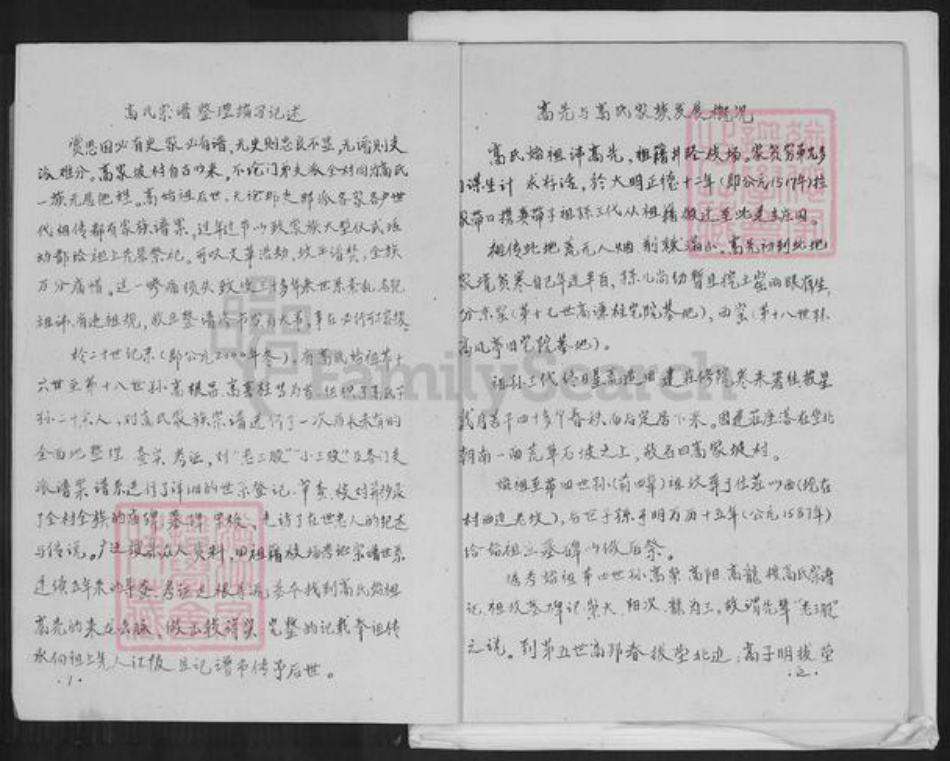 高氏宗谱整理编写记述
常思国必有史家必有谱,无史则忠良不显,无谱则支
派难分。高家坡村自古以来,不论门第支派全村同为高氏
一族元恩所稷。高始祖后世,无论那支那派各家各户世
代祖传都有家族谱累,过年过节以致家族大型仪式活
动都给祖上先景祭祀。可以文革浩劫,坟平谱焚,全族
万分痛惜。这一惨痛损失致使三十多年来世系紊乱,
祖讳,有违祖规,
于二十世纪末(即公元2000年冬)。有高氏始祖第十
六世至第十八世孙高根昌、高喜柱等为首,组织了高氏子
孙二十六人,对高氏家族宗谱进行了一次历来未有的
全面地整理、查实、考证,对"老三股""小三股"及各门支
派谱累谱系进行了详细的世系登记、审查、核对并涉及
了全村全族的庙碑、墓碑、走访了在世老人的记述
与传说。广泛搜索在人资料,回祖籍核场考证宗谱世系
连续五年来的寻查、考证追根寻源,基本找到高氏始祖
高先的来龙去脉、做出较确实、完整的记载奉祖传
永向祖上先人汇报,且记谱书传予后世。
·1·
高先与高氏家族发展概况
高氏始祖讳高先,祖籍井陉核场。家贫穷
谋生计 求存活,于大明正德十二年(即公元1517年)拉
家带口携妻带子祖孙三代从祖籍搬迁至此建立庄园。
相传此地荒无人烟,荆棘满山,高先初到此地
家境贫寒自己年近半百,孙儿尚幼暂且挖土窑两眼有生,
分东窑(第十七世高谦柱宅院基地),西窑(第十八世孙
高凤亭旧宅院基地)。
祖孙三代终日垦荒造田建庄修院寒来暑往披星
戴月苦干四十多个春秋而后定居下来。因建庄座落在坐北
朝南一面荒草石坡之上,故名曰高家坡村。
始祖至第四世孙(前四辈)祖坟葬于住庄以西(现在
村西边老坟),后世子孙于明万历十五年(公元1587年)
给始祖立墓碑以做后祭。
据考始祖第四世孙高荣、高阳、高龙,按高氏宗谱
记,祖坟墓碑记荣大、阳次、龙为三。故谓先辈"老三股"
之说。到第五世高邦春拔茔北边,高子明拔茔
·2·